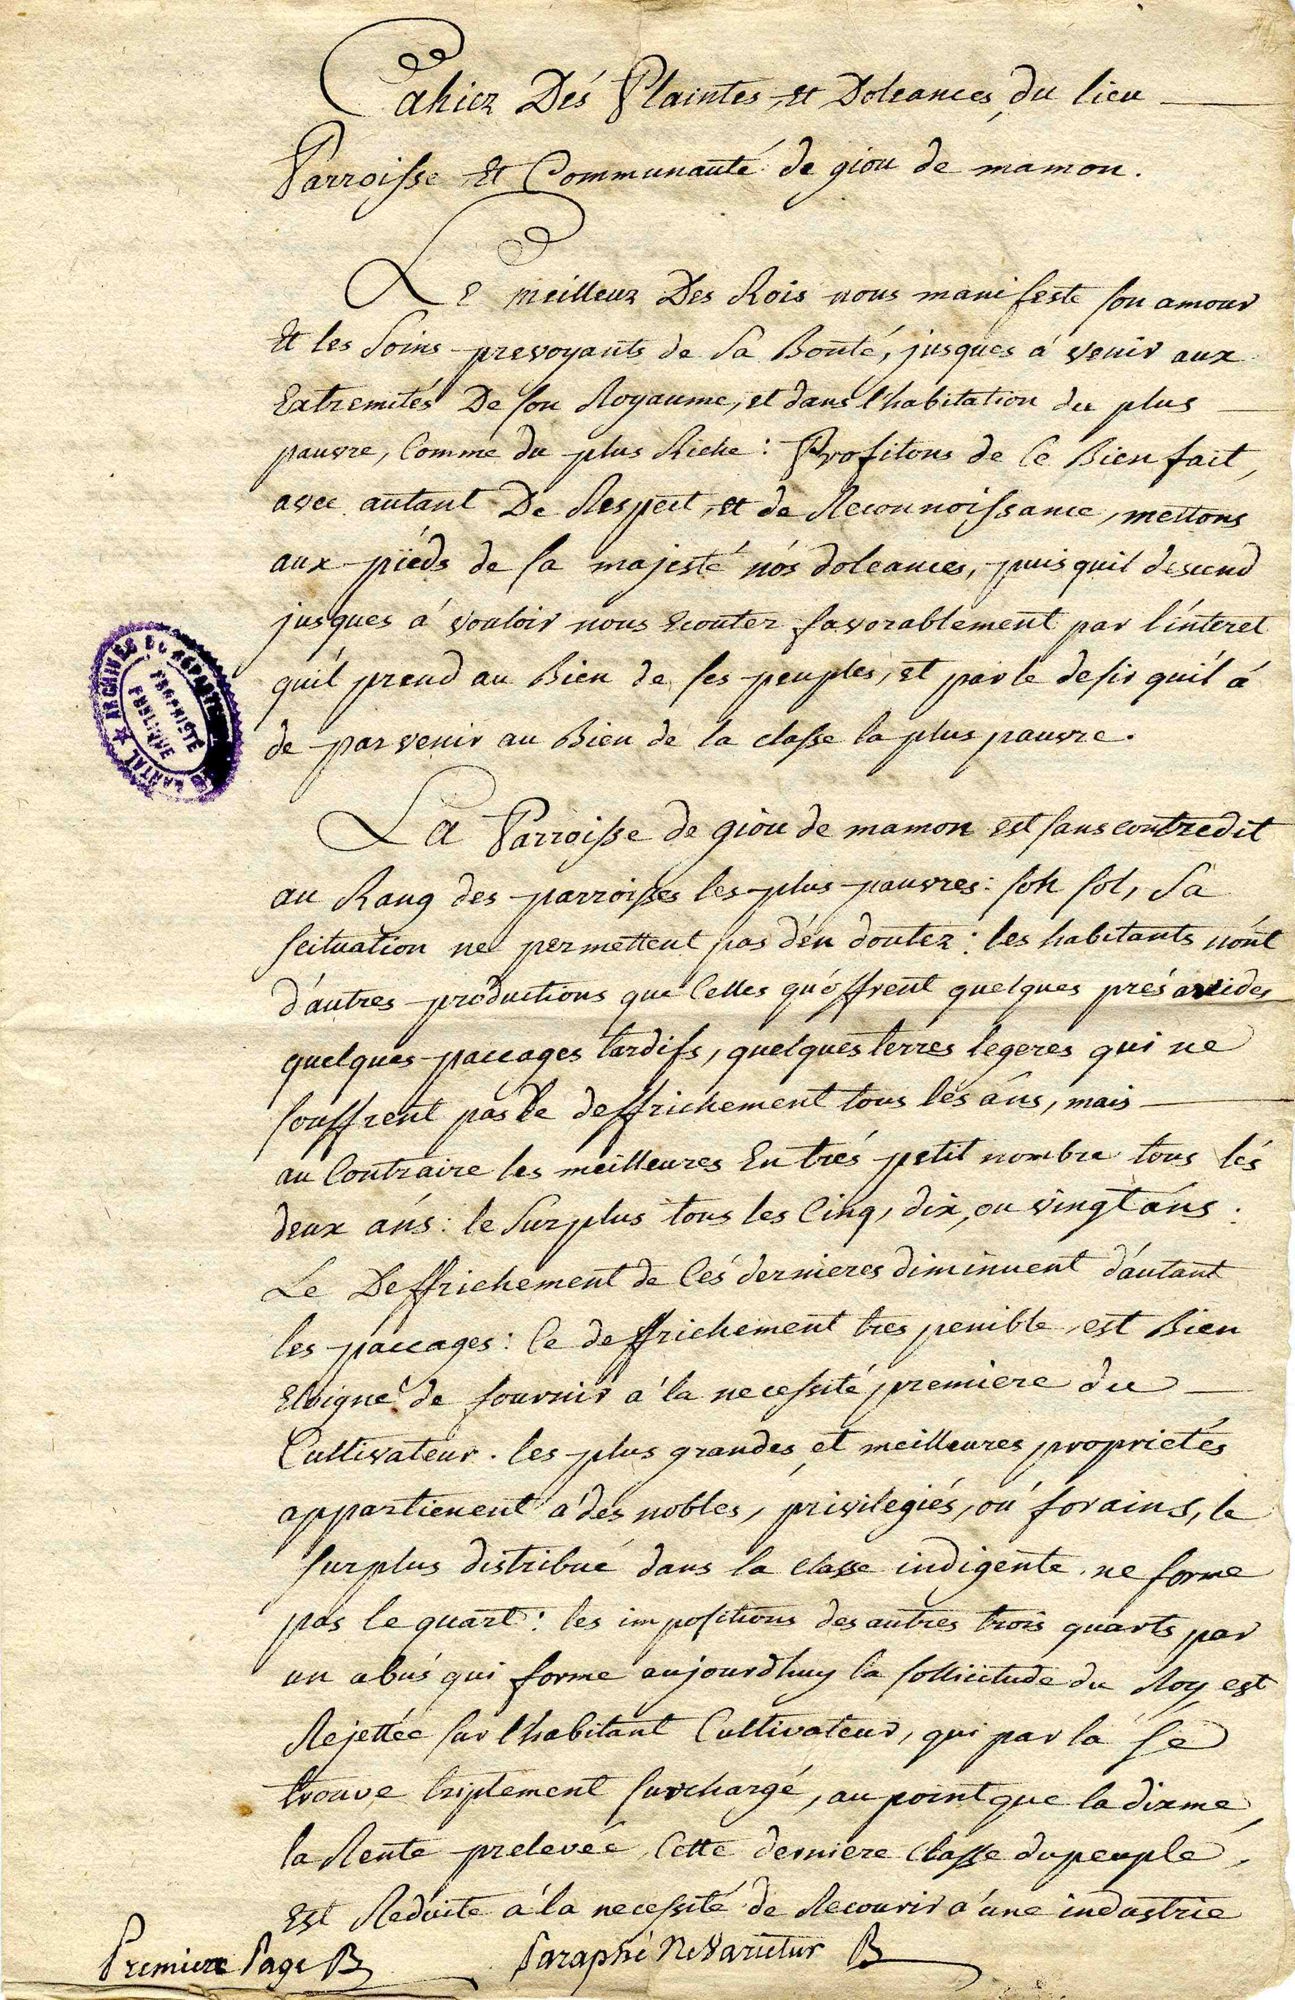 Cahier Dés Plaintes et Doleances, du lieu
Parroisse et Communauté de giou de mamon.
Le meilleur Des Rois nous manifeste son amour
et les soins prevoyants de sa Bonté, jusques á venir aux
Extremités De son Royaume, et dans l'habitation du plus
pauvre, comme du plus Riche : Profitons de ce Bienfait,
avec autant De Respect, et de Reconnoissance, mettons
aux piéds de sa majesté nós doleances, puisquil descend
jusques á vouloir nous ecouter favorablement par l'interet
quil prend au Bien de ses peuples, et par le desir quil á
de parvenir au Bien de la classe la plus pauvre.
La Parroisse de giou de mamon est sans contredit
au Rang des parroisses les plus pauvres : son sol, sa
scituation ne permettent pas d'én douter : les habitants n'ónt
d'autres productions que celles qu'óffrent quelques prés arides
quelques paccages tardifs, quelques terres legeres qui ne
souffrent pas le deffrichement tous lés áns, mais
au contraire les meilleures En trés petit nombre tous lés
deux áns : le surplus tous les cinq, dix, ou vingt áns :
Le Deffrichement de cés dernieres diminuent d'áutant
les paccages : ce deffrichement tres penible est Bien
Eloigné de fournir á la necessité premiere du
Cultivateur. les plus grandes et meilleures proprietés
appartienent á des nobles, privilegiés, oú forains, le
surplus distribué dans la classe indigente ne forme
pas le quart : les impositions des autres trois quarts par
un abus qui forme aujourdhuy la sollicitude du Roy est
Rejettée sur l'habitant Cultivateur, qui par lá se
trouve triplement surchargé, au point que la dixme,
la Rente prelevée cette derniere classe du peuple,
Est Reduite á la necessité de Recourir á une industrie
Premiere Page B Paraphé Ne Varietur B
ARCHIVES DU DEPARTEMENT CANTAL
PROPRIÉTÉ
PUBLIQUE